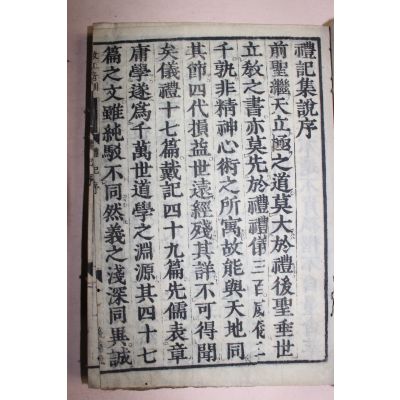 禮記集說序
前聖繼天立極之道莫大於禮後聖垂世
立敎之書亦莫先於禮禮儀三百威儀三
千孰非精神心術之所寓故能與天地同
其節四代損益世遠經殘其詳不可得聞
矣儀禮十七篇戴記四十九篇先儒表章
庸學遂爲千萬世道學之淵源其四十七
篇之文雖純駁不同然義之淺深同異誠